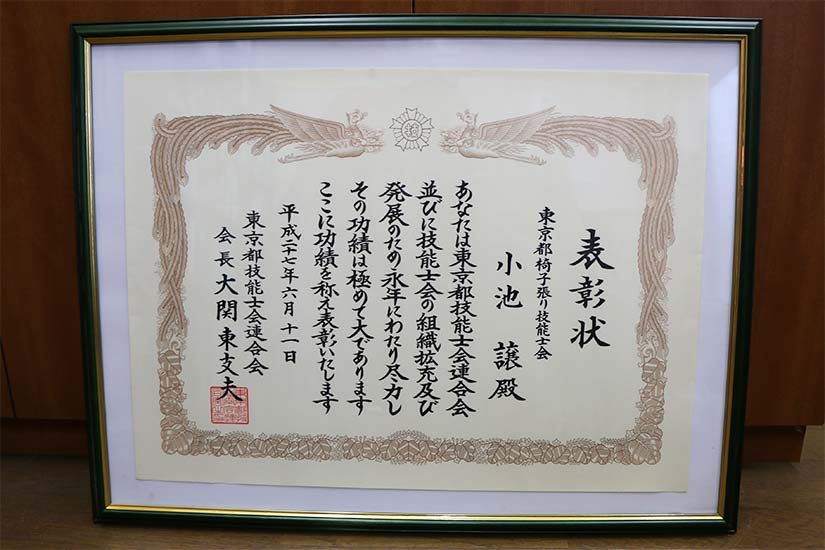 表彰状
東京都椅子張り技能士会
小池 譲殿
あなたは東京都技能士会連合会
並びに技能士会の組織拡充及び
発展のため永年にわたり尽力し
その功績は極めて大であります
ここに功績を称え表彰いたします
平成二十七年六月十一日
東京都技能士会連合会
会長 大関東支夫